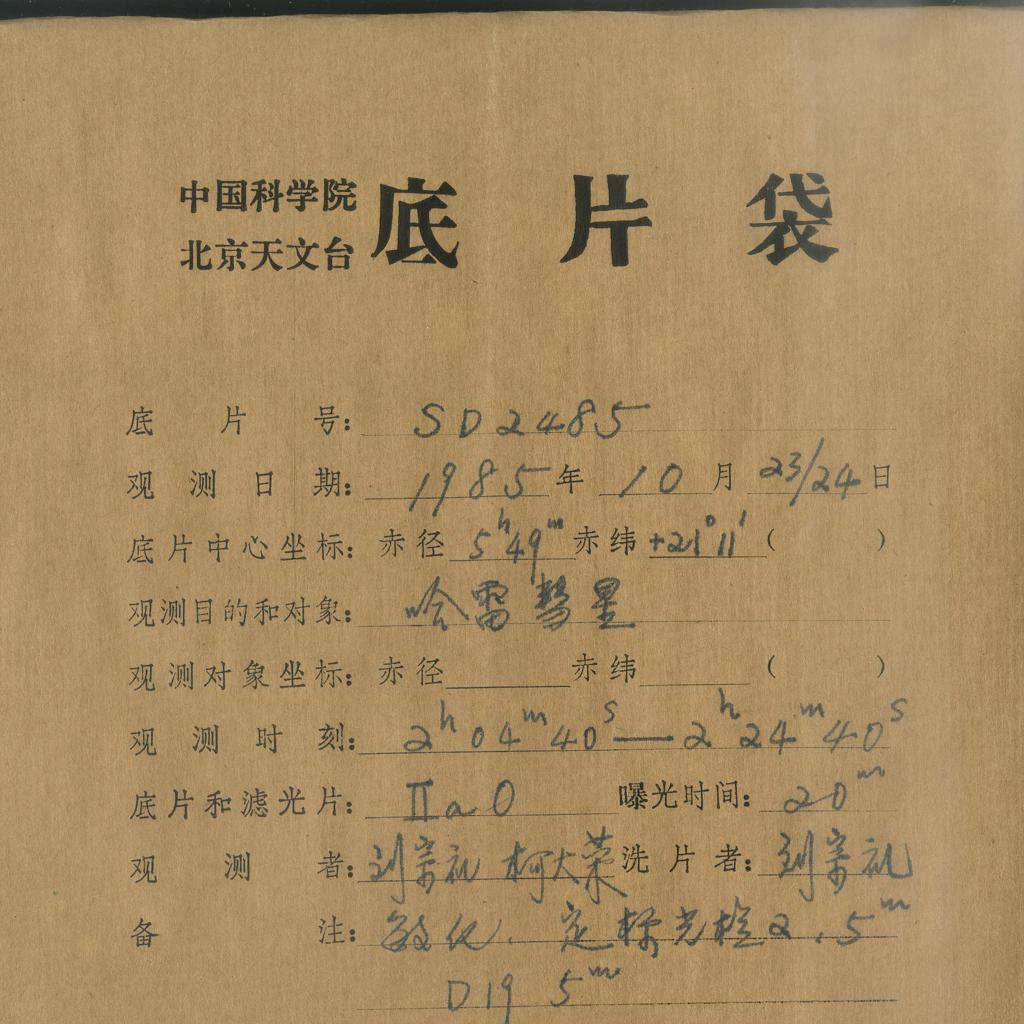 中国科学院
北京天文台 底片袋
底片号: SD2485
观测日期: 1985年10月23/24日
底片中心坐标: 赤径 5h49m 赤纬 +21°11′ ( )
观测目的和对象: 哈雷彗星
观测对象坐标: 赤径 赤纬 ( )
观测时刻: 2h04m40s—2h24m40s
底片和滤光片: IIaO 曝光时间: 20m
观测者: 刘宗礼 柯大荣 洗片者: 刘宗礼
备注: 敏化. 定标光楔2.5m
D19 5m